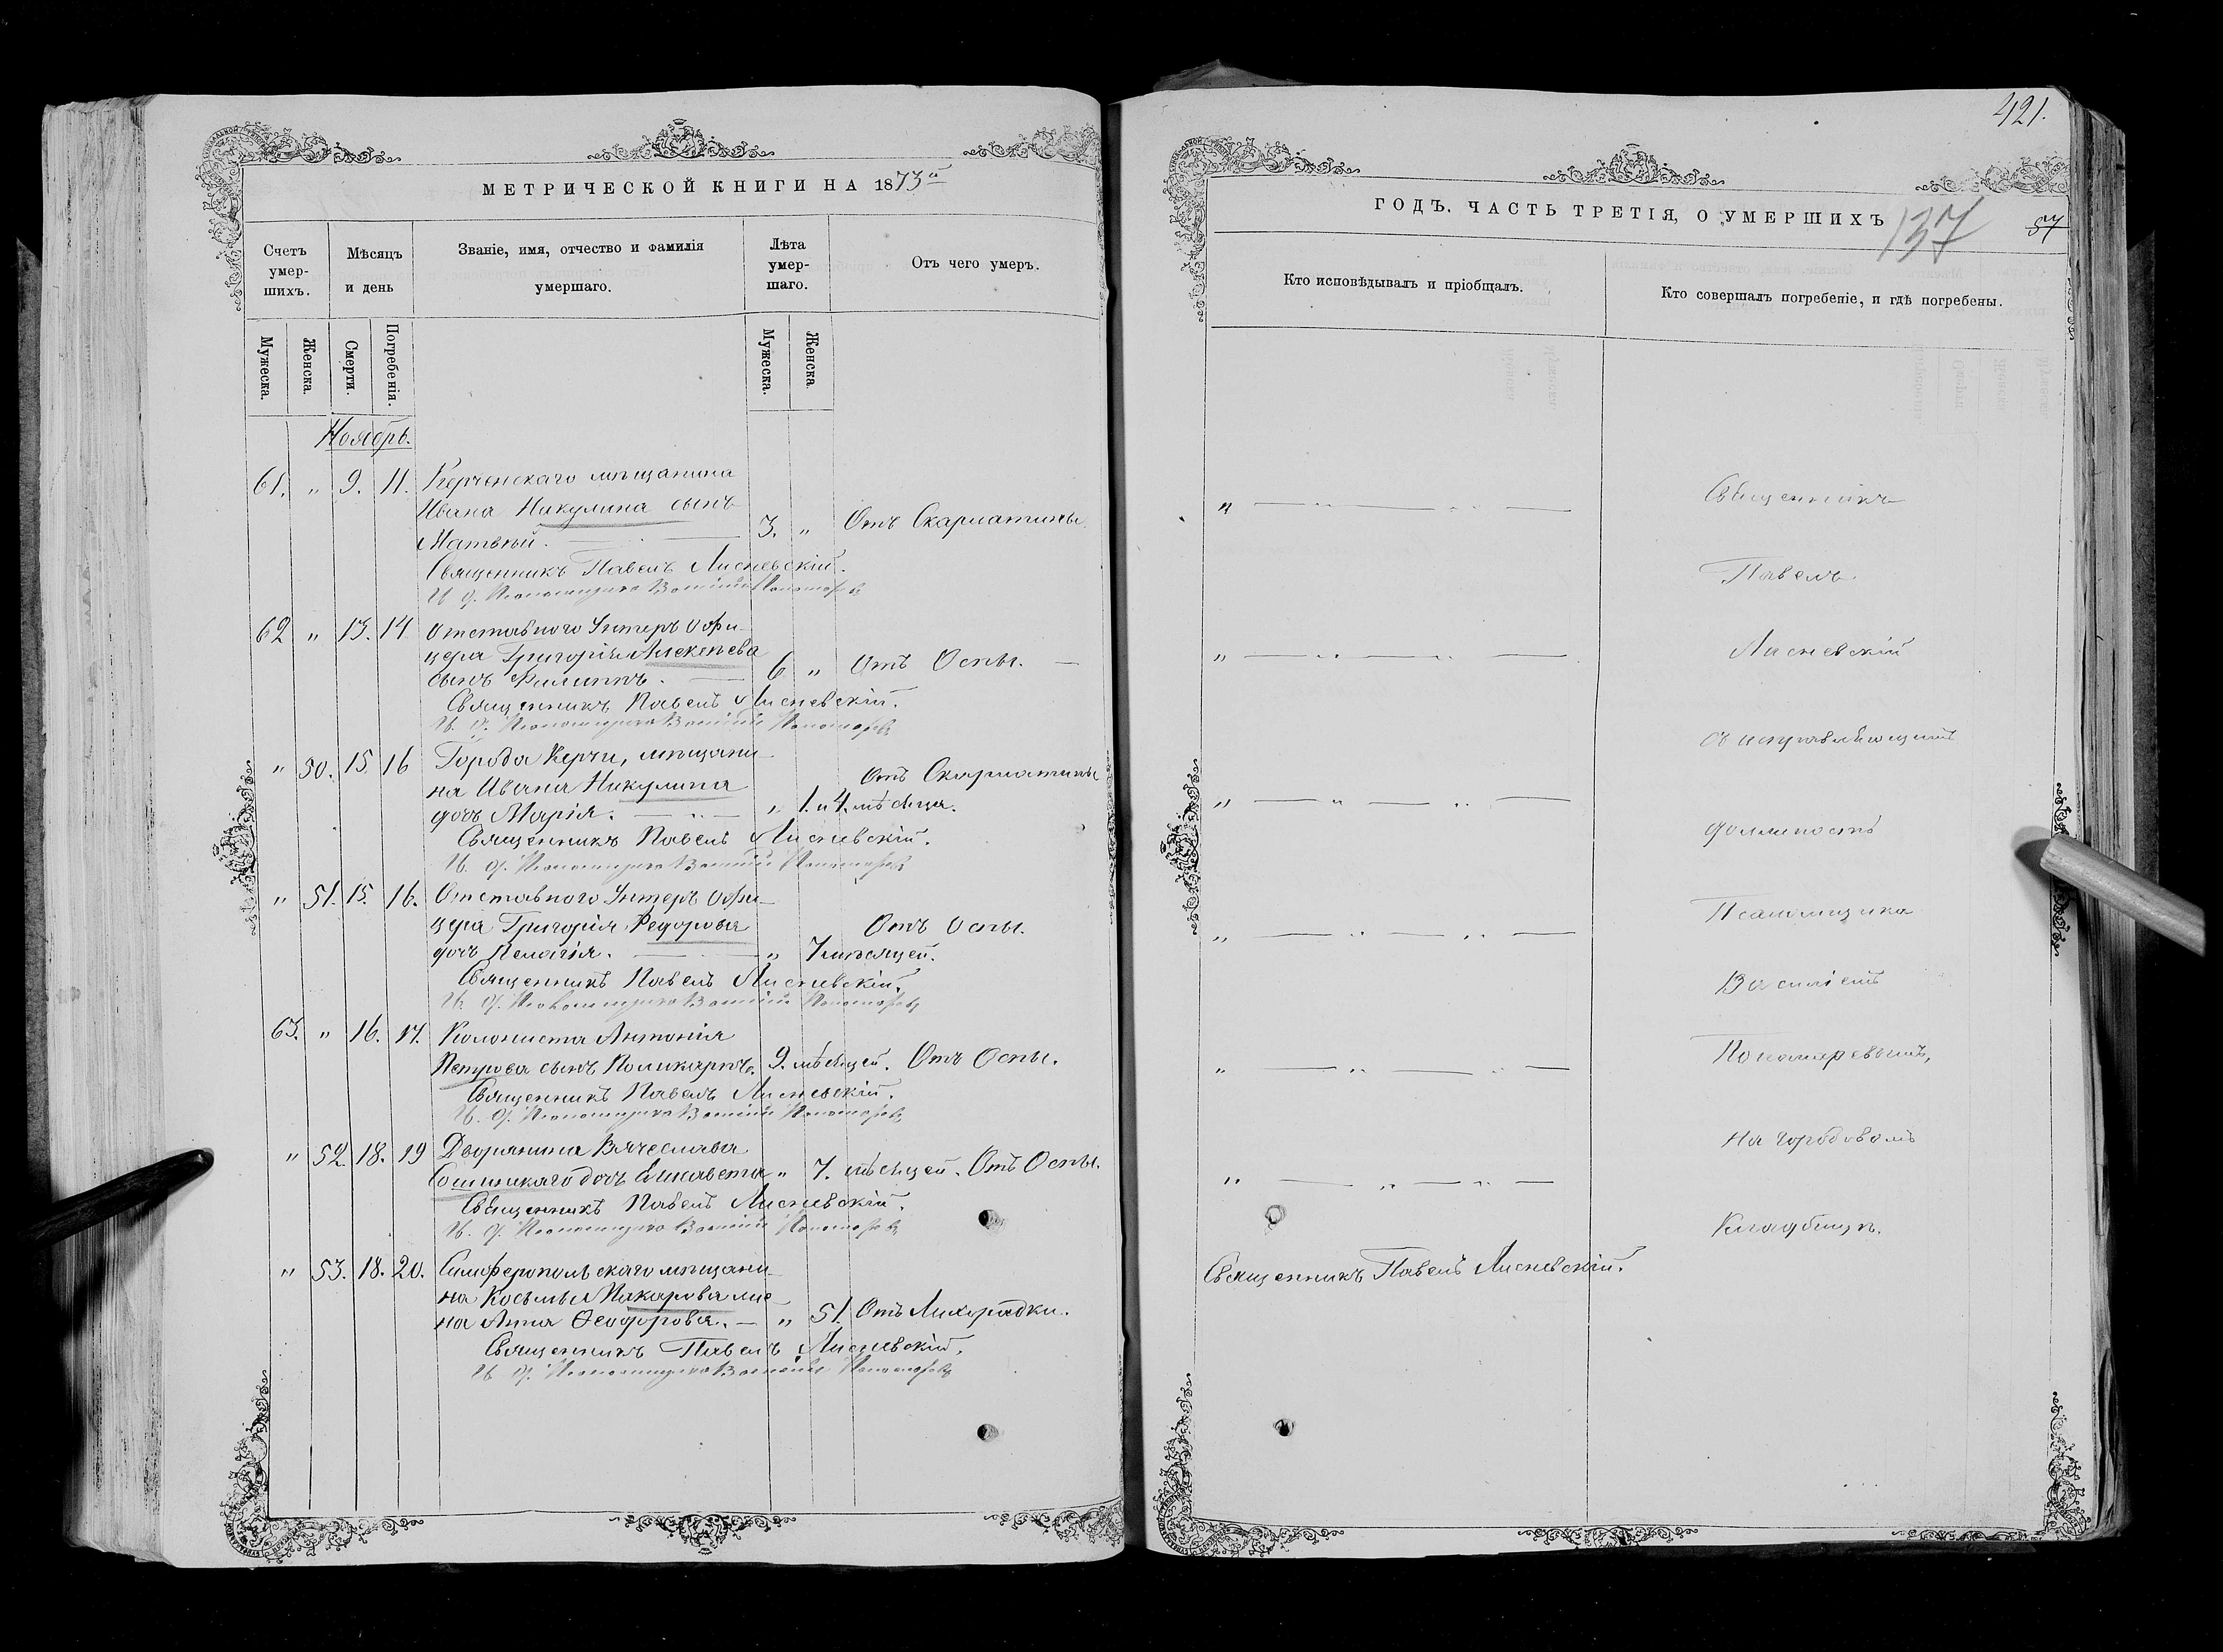 МЕТРИЧЕСКОЙ КНИГИ НА 1873й
Счетъ умершихъ.
Мѣсяцъ и день
Званіе, имя, отчество и фамилія умершаго.
Лѣта умершаго.
Отъ чего умеръ.
Мужеска.
Женска.
Смерти.
Погребенія.
Мужеска.
Женска.
Ноябрь.
61. " 9. 11. Керченскаго мѣщанина
Ивана Никулина сынъ
Матвѣй. 3. " Отъ Скарлатины.
Священникъ Павелъ Лисневскій.
И. д. Псаломщика Василій Пономаревъ
62 " 13. 14 Отставного Унтеръ Офи-
цера Григорія Алексѣева
сынъ Филиппъ. 6 " Отъ Оспы.
Священникъ Павелъ Лисневскій.
И. д. Псаломщика Василій Пономаревъ
" 50. 15. 16 Города Керчи, мѣщани-
на Ивана Никулина Отъ Скарлатины
дочь Марія. " 1. и 4. мѣсяца.
Священникъ Павелъ Лисневскій.
И. д. Псаломщика Василій Пономаревъ
" 51. 15. 16. Отставного Унтеръ Офи-
цера Григорія Федорова Отъ Оспы.
дочь Пелагія. " 7 мѣсяцей.
Священникъ Павелъ Лисневскій.
И. д. Псаломщика Василій Пономаревъ
63. " 16. 17. Колониста Антонія
Петрова сынъ Поликарпъ. 9. мѣсяцей. Отъ Оспы.
Священникъ Павелъ Лисневскій.
И. д. Псаломщика Василій Пономаревъ
" 52. 18. 19 Дворянина Вячеслава
дочь Елисавета " 7. мѣсяцей. Отъ Оспы.
Священникъ Павелъ Лисневскій.
И. д. Псаломщика Василій Пономаревъ
" 53. 18. 20. Симферопольскаго мѣщани-
на Косьмы Макарова же-
на Анна Ѳеодорова. " 51. Отъ Лихорадки.
Священникъ Павелъ Лисневскій.
И. д. Псаломщика Василій Пономаревъ
421.
ГОДЪ. ЧАСТЬ ТРЕТІЯ, О УМЕРШИХЪ
137
57
Кто исповѣдывалъ и пріобщалъ.
Кто совершалъ погребеніе, и гдѣ погребены.
Священникъ
Павелъ
Лисневскій
съ исправляющимъ
должность
Псаломщика
Василіемъ
Пономаревымъ,
на городовомъ
Кладбищѣ.
Священникъ Павелъ Лисневскій.